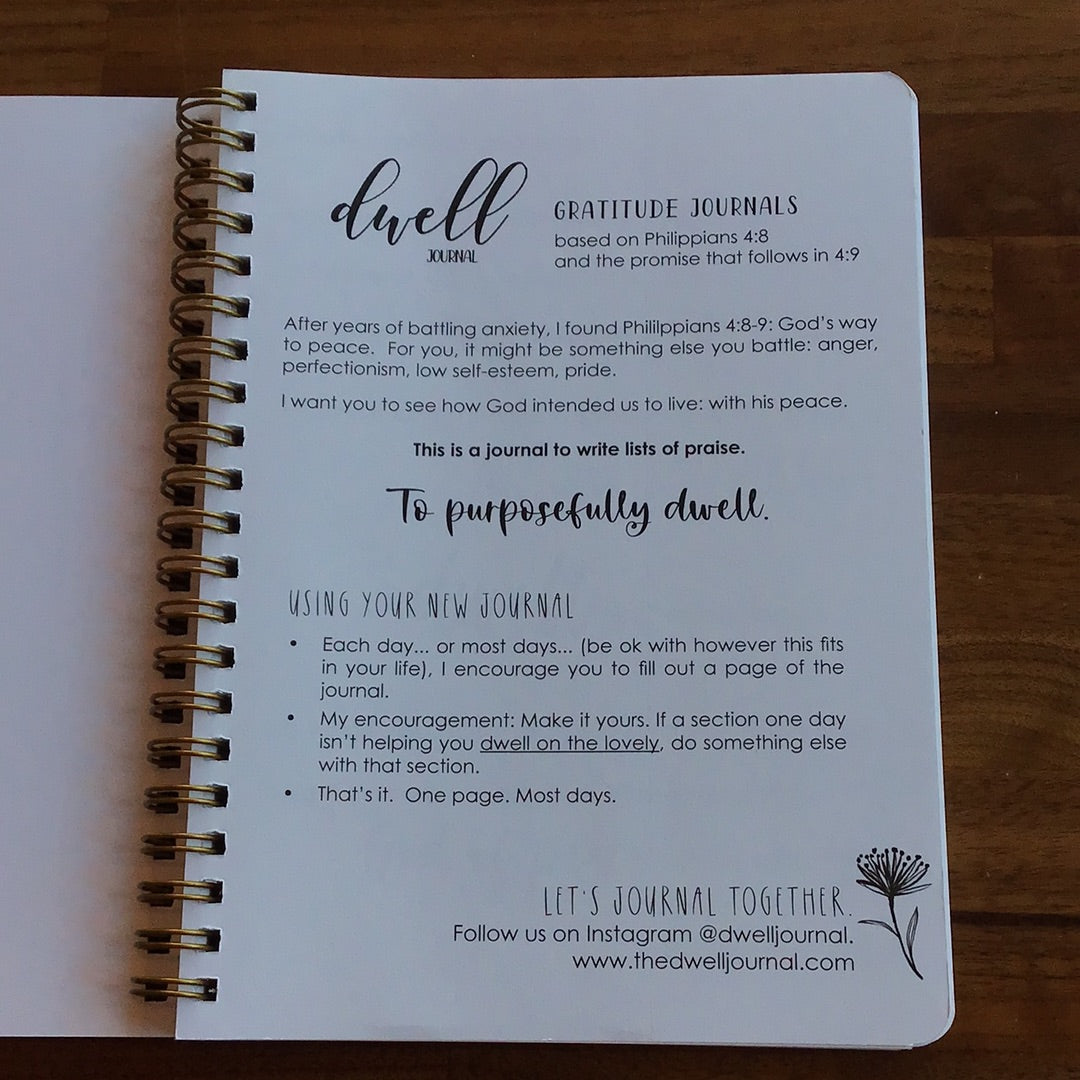 dwell
JOURNAL
GRATITUDE JOURNALS
based on Philippians 4:8
and the promise that follows in 4:9
After years of battling anxiety, I found Phililppians 4:8-9: God's way
to peace.  For you, it might be something else you battle: anger,
perfectionism, low self-esteem, pride.
I want you to see how God intended us to live: with his peace.
This is a journal to write lists of praise.
To purposefully dwell.
USING YOUR NEW JOURNAL
• Each day... or most days... (be ok with however this fits
in your life), I encourage you to fill out a page of the
journal.
• My encouragement: Make it yours. If a section one day
isn't helping you dwell on the lovely, do something else
with that section.
• That's it.  One page. Most days.
LET'S JOURNAL TOGETHER.
Follow us on Instagram @dwelljournal.
www.thedwelljournal.com